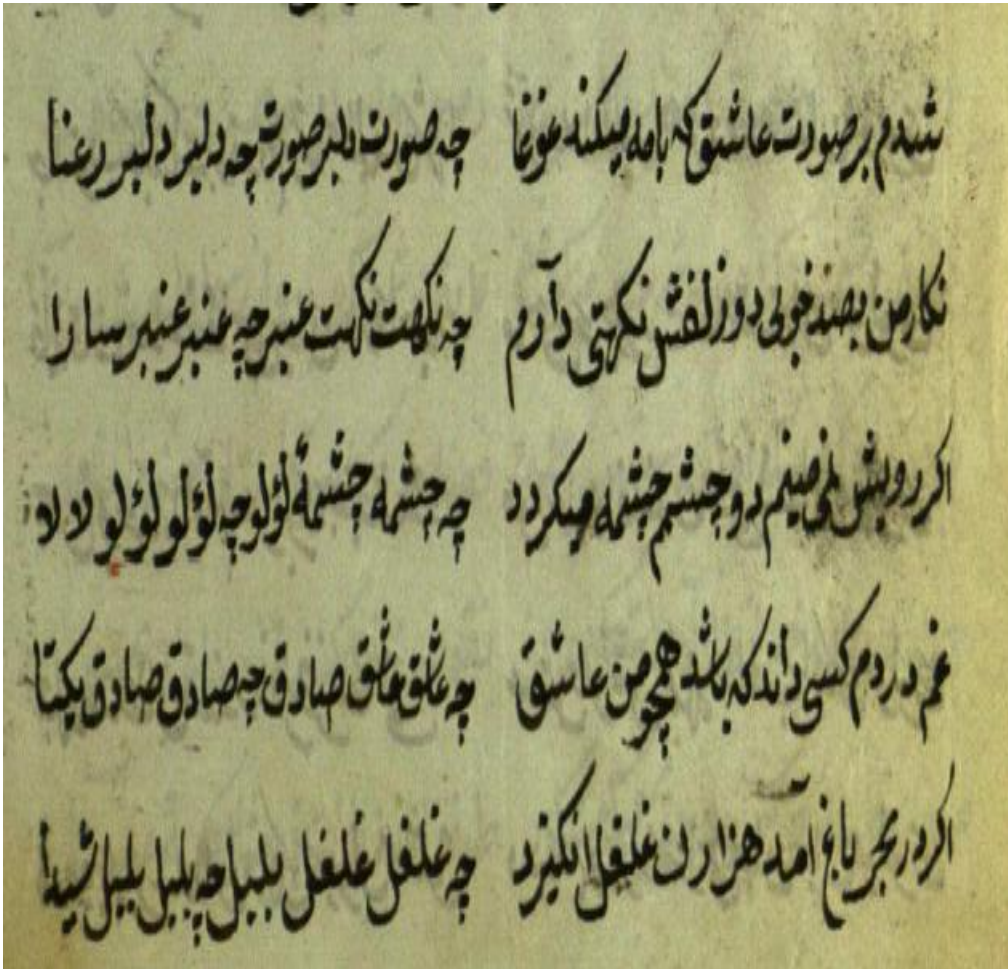 شدم بر صورت عاشق که بامه میکند غوغا چه صورت دلبر صورت چه دلبر دلبر رعنا
نکار من بصد خوبی دو زلفش نکهتی دآرم چه نکهت نکهت عنبر چه عنبر عنبر سارا
اکر رویش نمی‌بینم دو چشمم چشمه میکردد چه چشمه چشمهٔ لؤلو چه لؤلو لؤلو لالا
غم دردم کسی داند که باشد همچو من عاشق چه عاشق عاشق صادق چه صادق صادق یکتا
اکر در بحر باغ آمد هزارن غلغل انکیزد چه غلغل غلغل بلبل چه بلبل بلبل شیدا